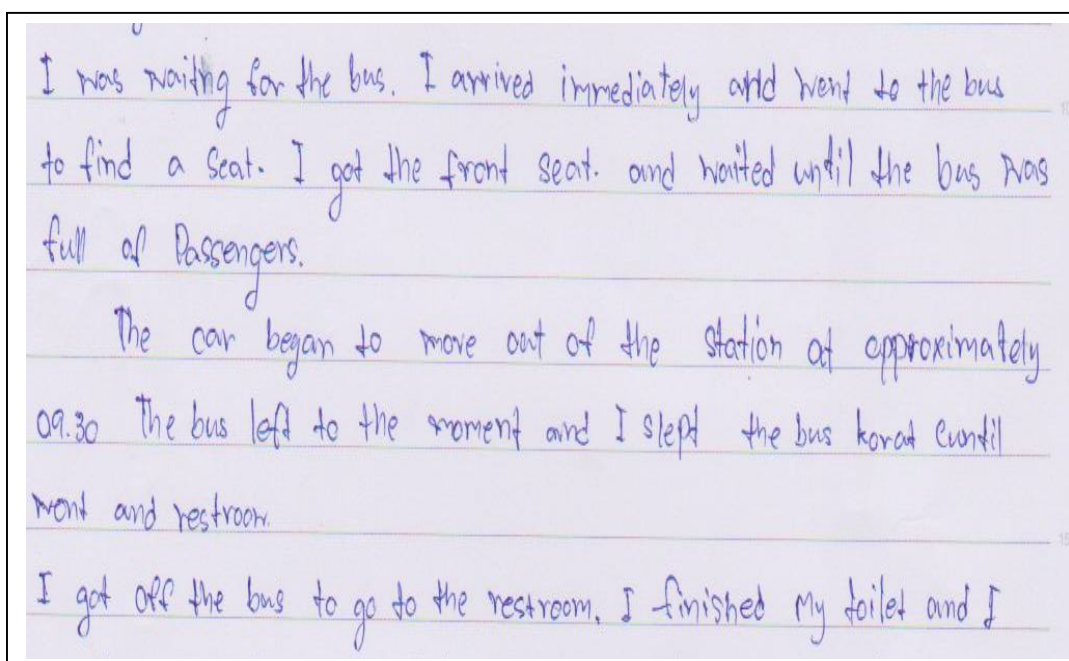 I was waitng for the bus. I arrived immediately and went to the bus
to find a seat. I got the front seat. and waited until the bus was
full of Passengers.
The car began to move out of the station at approximately
09.30 The bus left to the moment and I slept the bus korat
went and restroom.
I got off the bus to go to the restroom. I finished My toilet and I